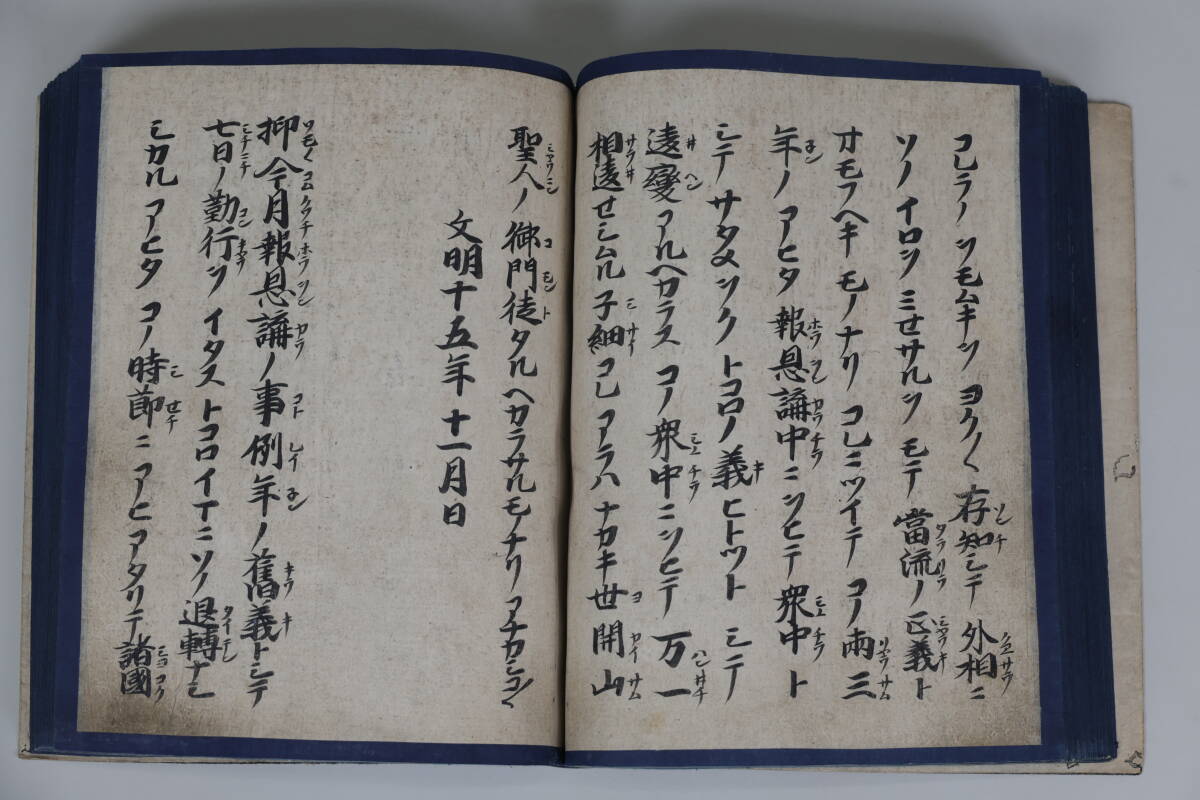 コレラノヲモムキヲヨク〱存知シテ外相ニ
ソノイロヲミセサルヲモテ當流ノ正義ト
オモフヘキモノナリコレニツイテコノ兩三
年ノアヒタ報恩講中ニヲヒテ衆中ト
シテサタメヲクトコロノ義ヒトツトシテ
違變アルヘカラスコノ衆中ニヲヒテ万一
相違セシムル子細コレアラハナカキ世開山
聖人ノ御門徒タルヘカラサルモノナリアナカシコ〱
文明十五年十一月日
抑今月報恩講ノ事例年ノ舊義トシテ
七日ノ勤行ヲイタストコロイマニソノ退轉ナシ
シカルアヒタコノ時節ニアヒアタリテ諸國